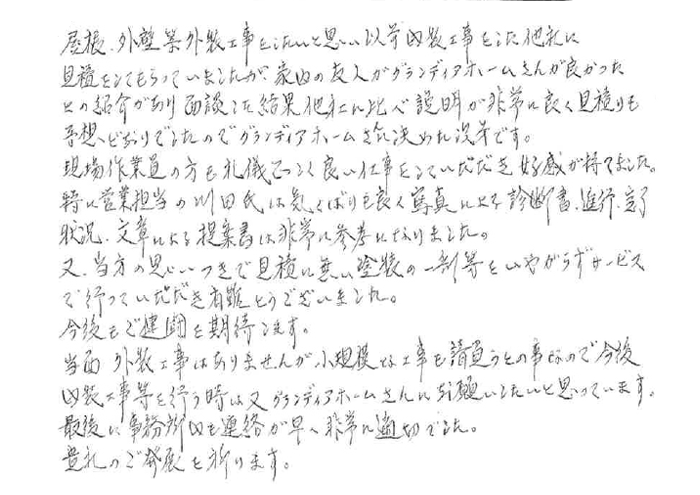 屋根、外壁等外装工事をしたいと思い以前内装工事をした他社に
見積をしてもらっていましたが、家内の友人がグランディアホームさんが良かった
との紹介があり面談した結果他社に比べ説明が非常に良く見積りも
予想どおりでしたのでグランディアホームさんに決めた次第です。
現場作業員の方も礼儀正しく良い仕事をしていただき好感が持てました。
特に営業担当の川田氏は気くばりも良く写真による診断書、進行、完了
状況、文章による提案書は非常に参考になりました。
又、当方の思いつきで見積に無い塗装の一部等をいやがらずサービス
で行っていただき有難とうございました。
今後もご健闘を期待します。
当面 外装工事はありませんが、小規模な工事も請負うとの事なので今後
内装工事等を行う時は又グランディアホームさんにお願いしたいと思っています。
最後に事務所内も連絡が早く非常に適切でした。
貴社のご発展を祈ります。